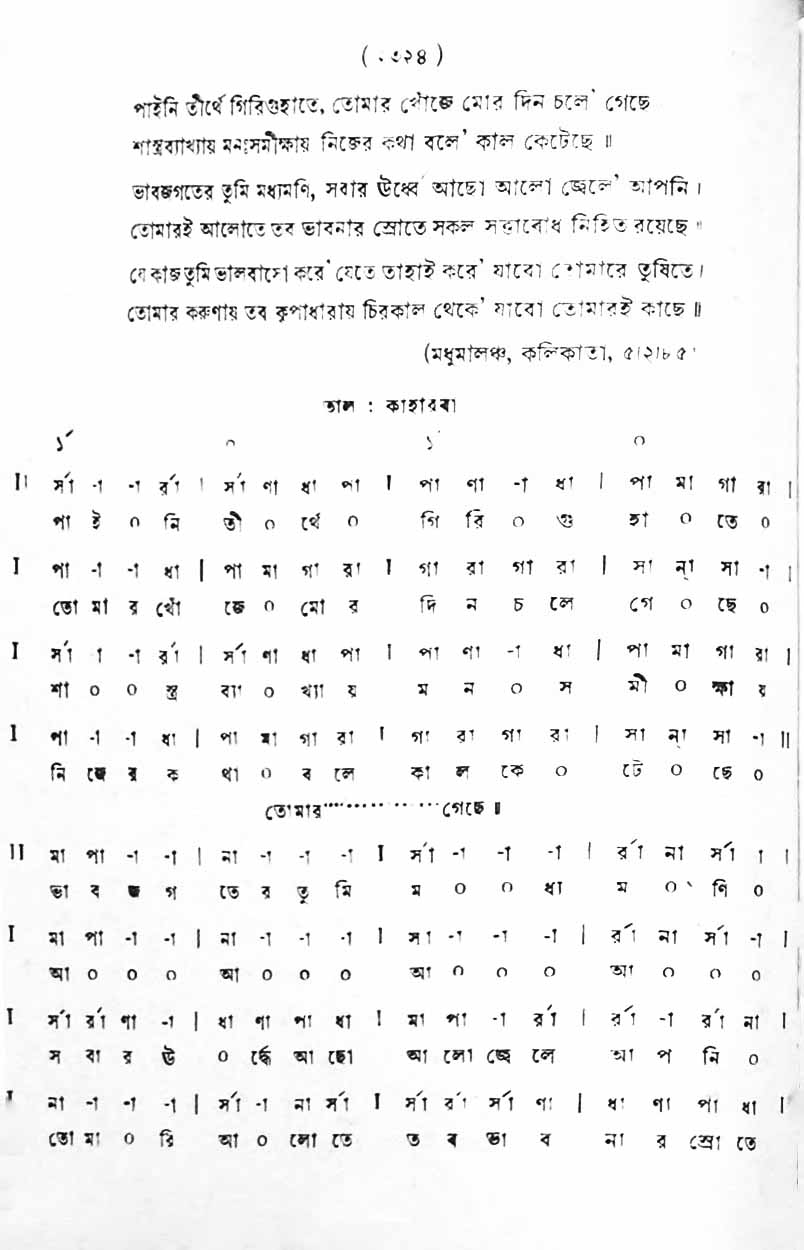 ( ৩২৪ )
পাইনি তীর্থে গিরিগুহাতে, তোমার খোঁজে মোর দিন চলে' গেছে
শাস্ত্রব্যাখ্যায় মনঃসমীক্ষায় নিজের কথা বলে' কাল কেটেছে ॥
ভাবজগতের তুমি মধ্যমণি, সবার ঊর্ধ্বে আছো আলো জ্বেলে' আপনি ।
তোমারই আলোতে তব ভাবনার স্রোতে সকল সত্তাবোধ নিহিত রয়েছে ॥
যে কাজ তুমি ভালবাসো করে' যেতে তাহাই করে' যাবো তোমারে তুষিতে ।
তোমার করুণায় তব কৃপাধারায় চিরকাল থেকে' যাবো তোমারই কাছে ॥
(মধুমালঞ্চ, কলিকাতা, ৫।২।৮৫
তাল : কাহারবা
১´ ০ ১´ ০
II র্সা -া -া র্রা । র্সা ণা ধা পা I পা ণা -া ধা । পা মা গা রা ।
পা ই ০ নি তী ০ র্থে ০ গি রি ০ গু হা ০ তে ০
I পা -া -া ধা । পা মা গা রা I গা রা গা রা । সা ন্া সা -া ।
তো মা র খোঁ জে ০ মো র দি ন চ লে গে ০ ছে ০
I র্সা া -া র্রা । র্সা ণা ধা পা I পা ণা -া ধা । পা মা গা রা ।
শা ০ ০ স্ত্র ব্যা ০ খ্যা য় ম ন ০ স মী ০ ক্ষা য়
I পা -া -া ধা । পা মা গা রা I গা রা গা রা । সা ন্া সা -া ॥
নি জে র ক থা ০ ব লে কা ল কে ০ টে ০ ছে ০
তোমার............গেছে ॥
II মা পা -া -া । না -া -া -া I র্সা -া -া -া । র্রা না র্সা া ।
ভা ব জ গ তে র তু মি ম ০ ০ ধ্য ম ০ ণি ০
I মা পা -া -া । না -া -া -া I সা -া -া -া । র্রা না র্সা -া ।
আ ০ ০ ০ আ ০ ০ ০ আ ০ ০ ০ আ ০ ০ ০
I র্সা র্রা ণা -া । ধা ণা পা ধা I মা পা -া র্রা । র্রা -া র্রা না ।
স বা র ঊ ০ র্দ্ধে আ ছো আ লো জ্বে লে আ প নি ০
I না -া -া -া । র্সা -া না র্সা I র্সা র্রা র্সা ণা । ধা ণা পা ধা ।
তো মা ০ রি আ ০ লো তে ত ব ভা ব না র স্রো তে